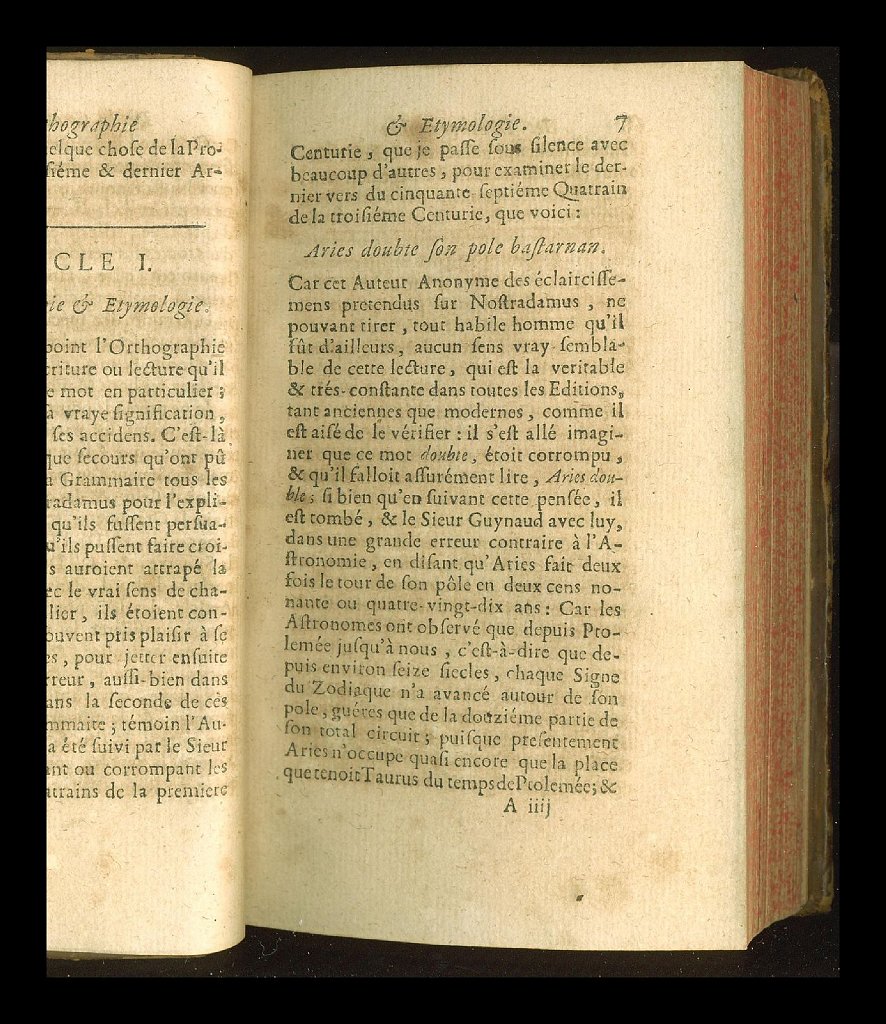 hographie
elque chose de la Pro-
siéme & dernier Ar-
CLE I.
ie & Etymologie.
point l'Orthographie
criture ou lecture qu'il
e mot en particulier ;
a vraye signification,
ses accidens. C'est-là
que secours qu'ont pû
a Grammaire tous les
radamus pour l'expli-
qu'ils fussent persua-
u'ils pussent faire croi-
s auroient attrapé la
ec le vrai sens de cha-
lier, ils étoient con-
ouvent pris plaisir à se
es, pour jetter ensuite
rreur, aussi-bien dans
ans la seconde de ces
mmaire ; témoin l'Au-
a été suivi par le Sieur
ant ou corrompant les
atrains de la premiere
& Etymologie. 7
Centurie, que je passe sous silence avec
beaucoup d'autres, pour examiner le der-
nier vers du cinquante-septiéme Quatrain
de la troisiéme Centurie, que voici :
Aries doubte son pole bastarnan.
Car cet Auteur Anonyme des éclaircisse-
mens pretendus sur Nostradamus, ne
pouvant tirer, tout habile homme qu'il
fût d'ailleurs, aucun sens vray-sembla-
ble de cette lecture, qui est la veritable
& trés-constante dans toutes les Editions,
tant anciennes que modernes, comme il
est aisé de le vérifier : il s'est allé imagi-
ner que ce mot doubte, étoit corrompu,
& qu'il falloit assurément lire, Aries dou-
ble ; si bien qu'en suivant cette pensée, il
est tombé, & le Sieur Guynaud avec luy,
dans une grande erreur contraire à l'A-
stronomie, en disant qu'Aries fait deux
fois le tour de son pôle en deux cens no-
nante ou quatre-vingt-dix ans : Car les
Astronomes ont observé que depuis Pto-
lemée jusqu'à nous, c'est-à-dire que de-
puis environ seize siecles, chaque Signe
du Zodiaque n'a avancé autour de son
pole, guéres que de la douziéme partie de
son total circuit ; puisque presentement
Aries n'occupe quasi encore que la place
que tenoit Taurus du temps de Ptolemée ; &
A iiij